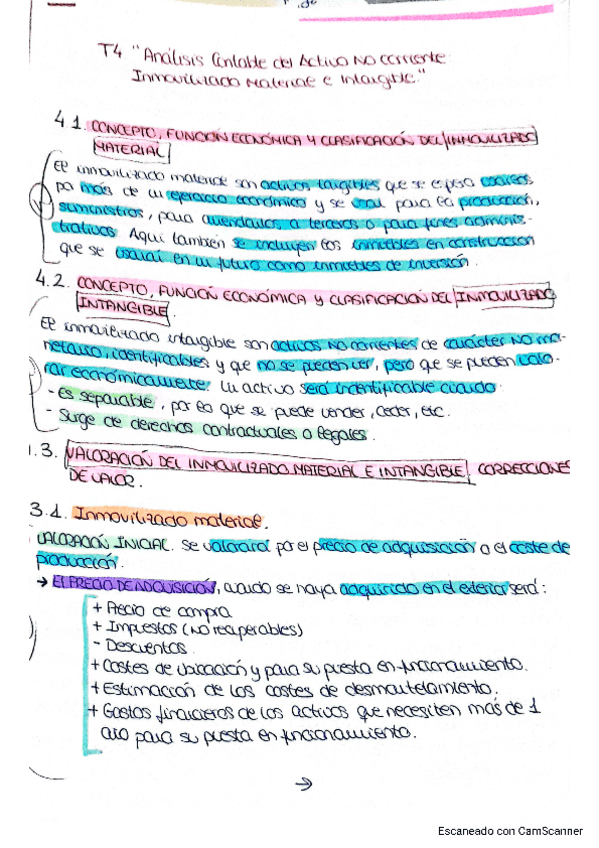 T4 "Análisis Contable del Activo No corriente
Inmovilizado Material e Intangible."
4.1. CONCEPTO, FUNCIÓN ECONÓMICA Y CLASIFICACIÓN DEL INMOVILIZADO
MATERIAL
El inmovilizado material son activos tangibles que se espera usarlos
por más de un ejercicio económico y se usan para la producción,
suministros, para arrendarlos a terceros o para fines adminis-
trativos. Aquí también se incluyen los inmuebles en construcción
que se usarán en un futuro como inmuebles de inversión.
4.2. CONCEPTO, FUNCIÓN ECONÓMICA Y CLASIFICACIÓN DEL INMOVILIZADO
INTANGIBLE.
El inmovilizado intangible son activos no corrientes de carácter no mo-
netario, identificables y que no se pueden ver, pero que se pueden valo-
rar económicamente. Un activo será indentificable cuando:
- es separable, por lo que se puede vender, ceder, etc.
- Surge de derechos contractuales o legales.
1.3. VALORACIÓN DEL INMOVILIZADO MATERIAL E INTANGIBLE. CORRECCIONES
DE VALOR.
3.1. Inmovilizado material.
VALORACIÓN INICIAL. Se valorará por el precio de adquisición o el coste de
producción.
→ EL PRECIO DE ADQUISICIÓN, cuando se haya adquirido en el exterior será:
+ Precio de compra
+ Impuestos (No recuperables)
- Descuentos
+ Costes de ubicación y para su puesta en funcionamiento.
+ Estimación de los costes de desmantelamiento.
+ Gastos financieros de los activos que necesiten más de 1
año para su puesta en funcionamiento.
→
Escaneado con CamScanner